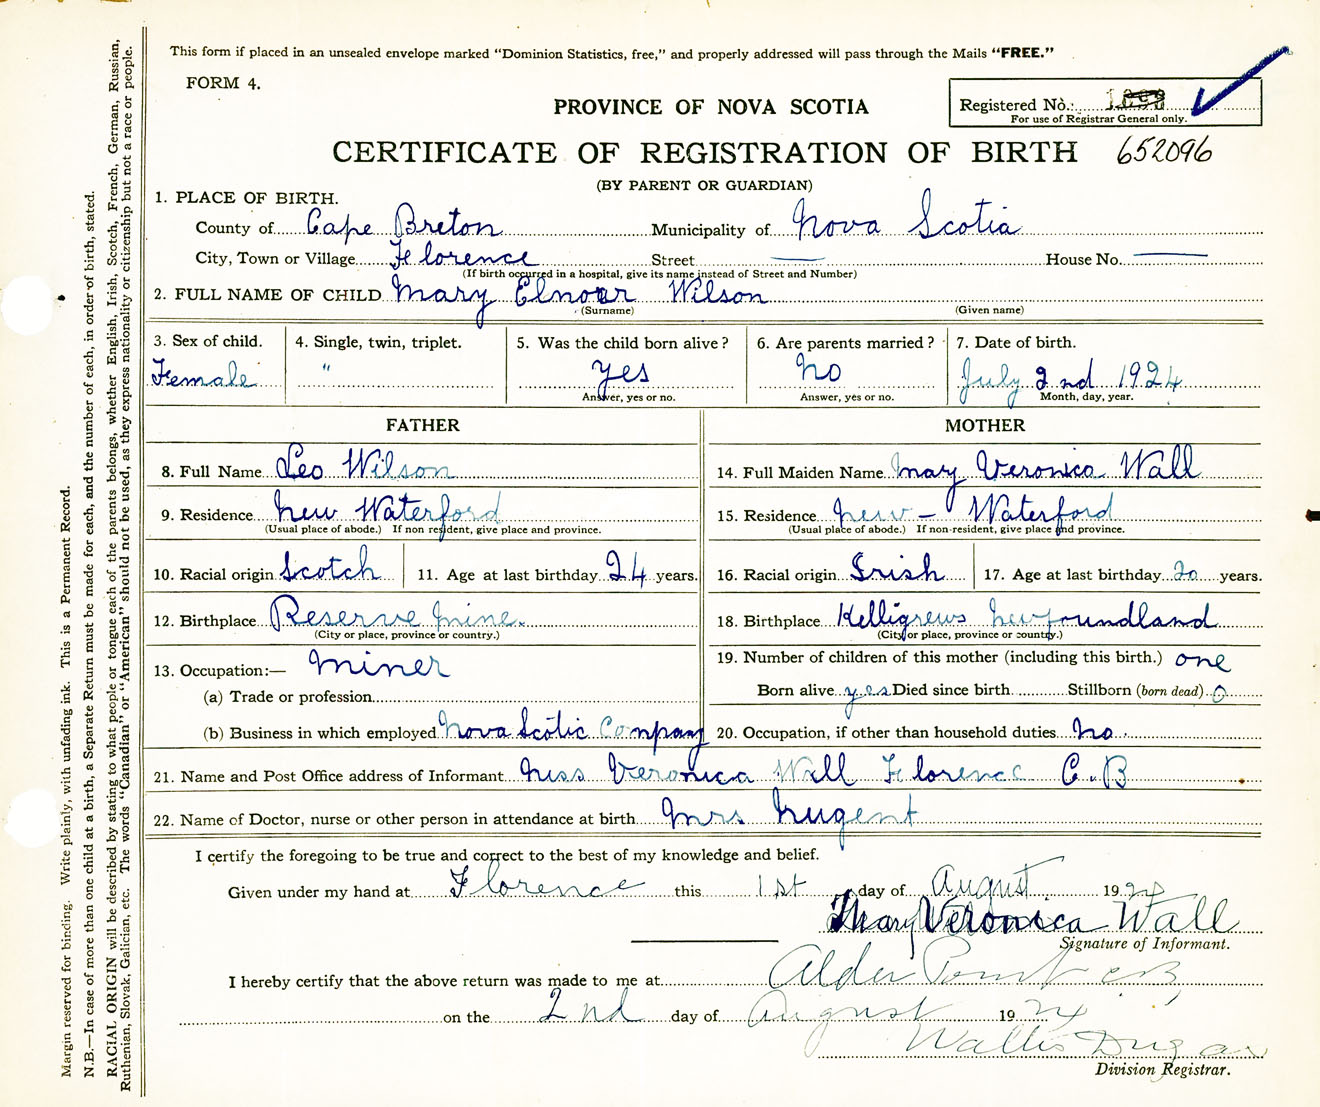 This form if placed in an unsealed envelope marked "Dominion Statistics, free," and properly addressed will pass through the Mails "FREE."
FORM 4.
PROVINCE OF NOVA SCOTIA
Registered No.:
For use of Registrar General only.
CERTIFICATE OF REGISTRATION OF BIRTH 652096
(BY PARENT OR GUARDIAN)
1. PLACE OF BIRTH.
County of Cape Breton Municipality of Nova Scotia
City, Town or Village Florence Street — House No. —
(If birth occurred in a hospital, give its name instead of Street and Number)
2. FULL NAME OF CHILD Mary Elnoar Wilson
(Surname) (Given name)
3. Sex of child. 4. Single, twin, triplet. 5. Was the child born alive? 6. Are parents married? 7. Date of birth.
Female " yes No July 2nd 1924
Answer, yes or no. Answer, yes or no. Month, day, year.
FATHER MOTHER
8. Full Name Leo Wilson 14. Full Maiden Name Mary Veronica Wall
9. Residence New Waterford 15. Residence New - Waterford
(Usual place of abode.) If non resident, give place and province. (Usual place of abode.) If non-resident, give place and province.
10. Racial origin Scotch 11. Age at last birthday 24 years. 16. Racial origin Irish 17. Age at last birthday 20 years.
12. Birthplace Reserve mine. 18. Birthplace Kelligrews Newfoundland
(City or place, province or country.) (City or place, province or country.)
13. Occupation:— miner 19. Number of children of this mother (including this birth.) one
(a) Trade or profession Born alive yes Died since birth Stillborn (born dead) 0
(b) Business in which employed Nova Scotic Company 20. Occupation, if other than household duties No.
21. Name and Post Office address of Informant Miss Veronica Wall Florence C.B
22. Name of Doctor, nurse or other person in attendance at birth Mrs Nugent
I certify the foregoing to be true and correct to the best of my knowledge and belief.
Given under my hand at Florence this 1st day of August 1924
Mary Veronica Wall
Signature of Informant.
I hereby certify that the above return was made to me at Alder Point CB,
on the 2nd day of August 1924
Division Registrar.
Margin reserved for binding. Write plainly, with unfading ink. This is a Permanent Record.
N.B.—In case of more than one child at a birth, a Separate Return must be made for each, and the number of each, in order of birth, stated.
RACIAL ORIGIN will be described by stating to what people or tongue each of the parents belongs, whether English, Irish, Scotch, French, German, Russian,
Ruthenian, Slovak, Galician, etc. The words "Canadian" or "American" should not be used, as they express nationality or citizenship but not a race or people.